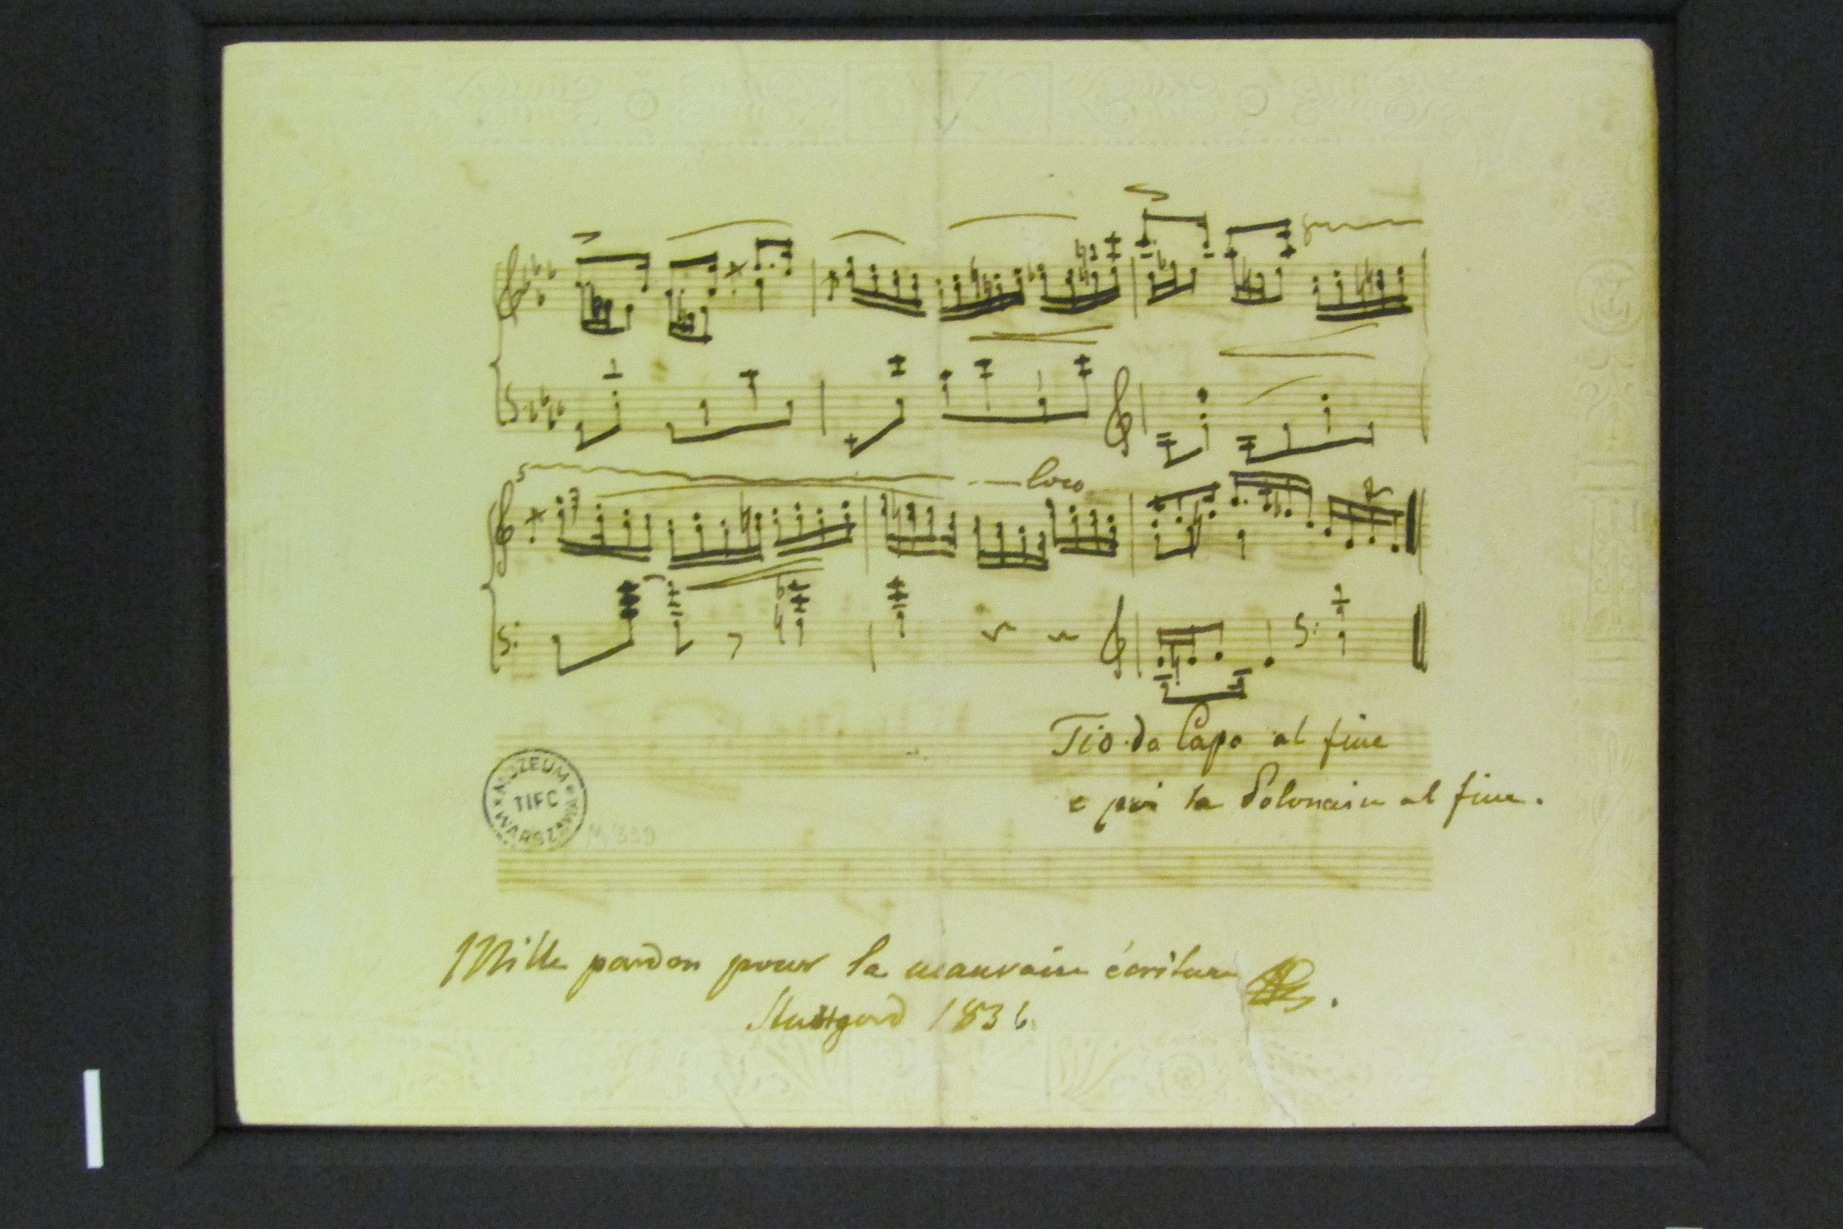 loco
Tio da Capo al fine
e poi la Polonaise al fine.
MUZEUM
TIFC
WARSZAWA
M/339
Mille pardon pour la mauvaise écriture
Stuttgard 1836